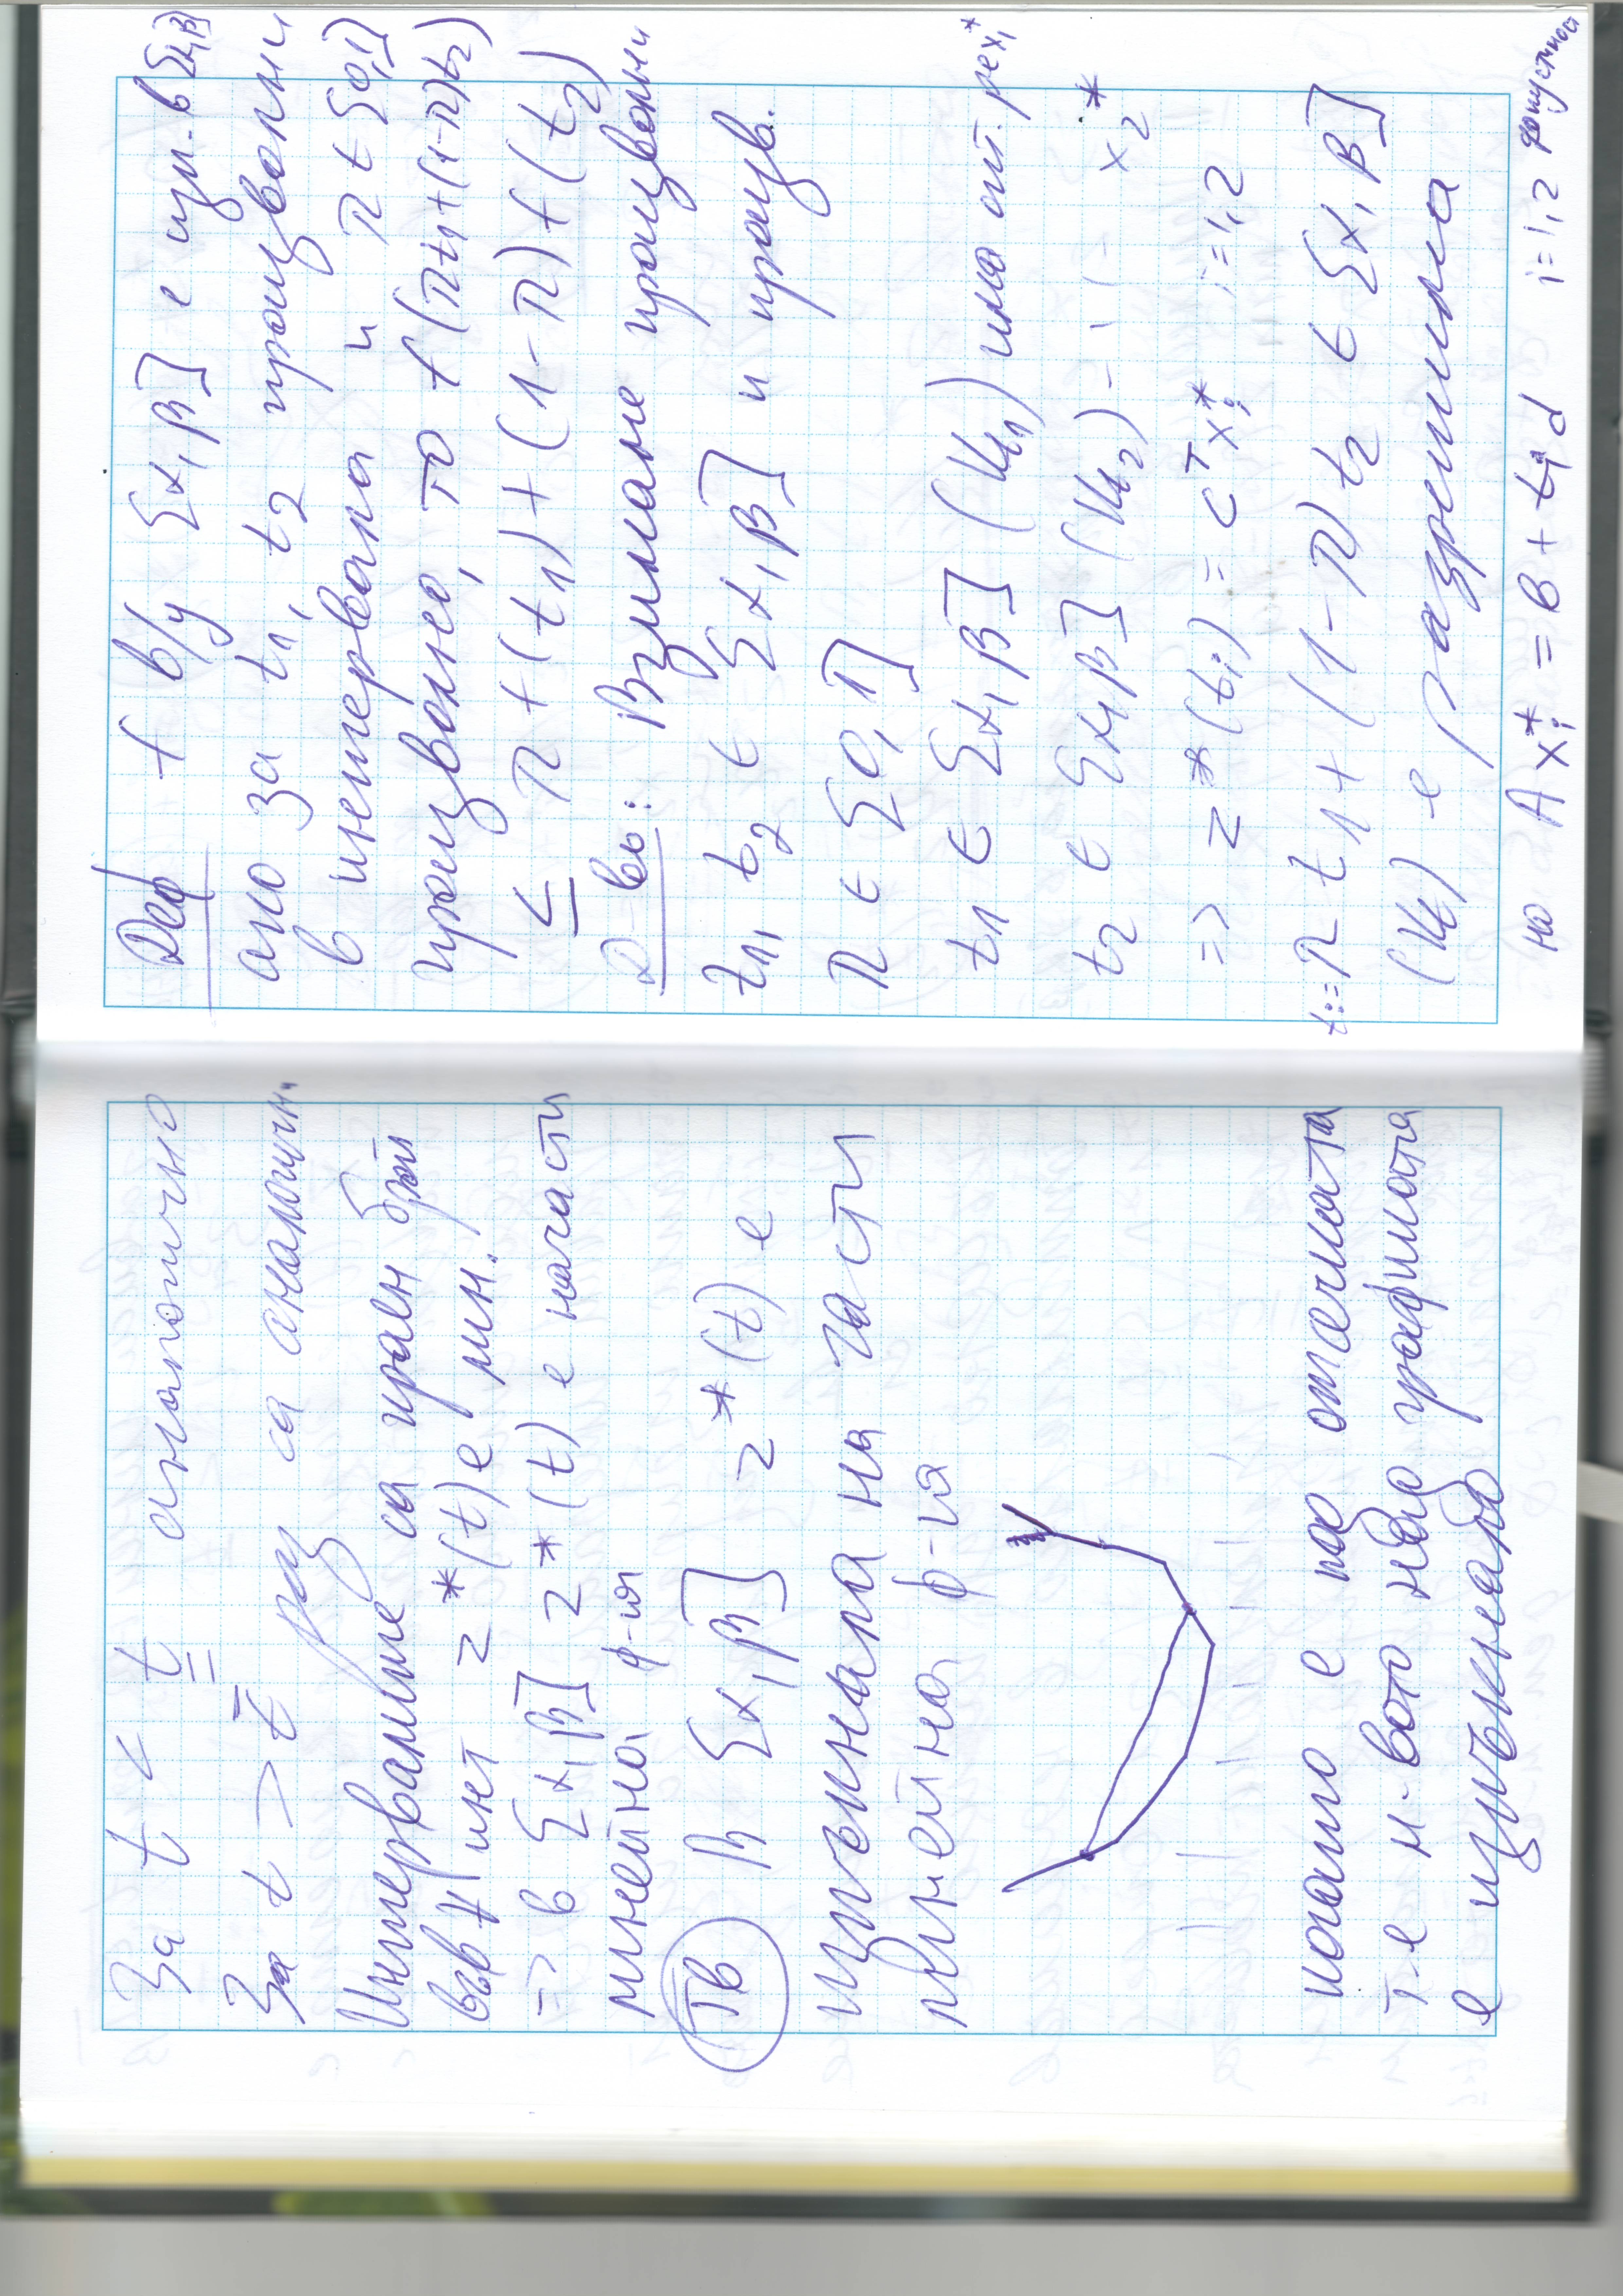 За t < t̲̲ аналогично
За t > t̄ раз са аналогичн.
Интервалите са краен брой
във ∀ инт z*(t) е лин.
=> в [α, β] z*(t) е начасти
линейна ф-ия
Тв В [α, β] z*(t) е
изпъкнала на части
линейна ф-ия
когато е под отсечката
т.е м-вото над графиката
е изпъкнало
Деф f в/у [α, β] е изп. в [α, β]
ако за t₁, t₂ произволни
в интервала и λ ∈ [0, 1]
произволно, то f(λt₁ + (1-λ)t₂)
≤ λ f(t₁) + (1-λ) f(t₂)
Д-во: Взимаме произволни
t₁, t₂ ∈ [α, β] и произв.
λ ∈ [0, 1]
t₁ ∈ [α, β] (K_{t₁}) има опт. реш x₁*
t₂ ∈ [α, β] (K_{t₂}) - | | - x₂*
=> z*(tᵢ) = cᵀxᵢ* i = 1, 2
t := λ t₁ + (1-λ) t₂ ∈ [α, β]
(K_t) е разрешима
но A xᵢ* = b + tᵢ d i = 1, 2 допустимост